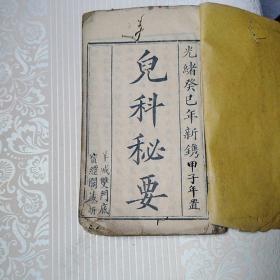 光緒癸巳年新鐫
甲子年置
兒科秘要
羊城雙門底
寳經閣藏板